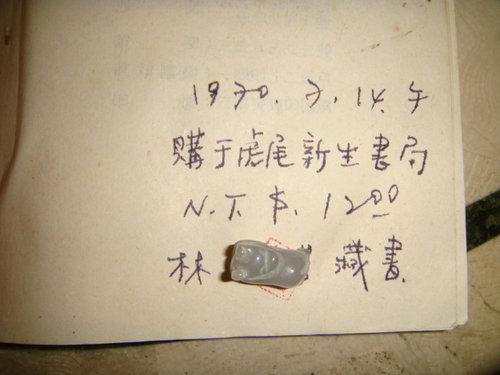 1970 7. 14. 午
購于虎尾新生書局
N.T.$. 12.00
林 藏書